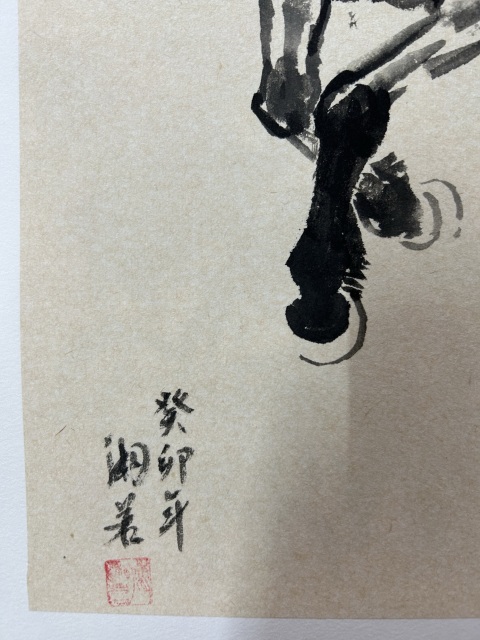 癸卯年
湘若